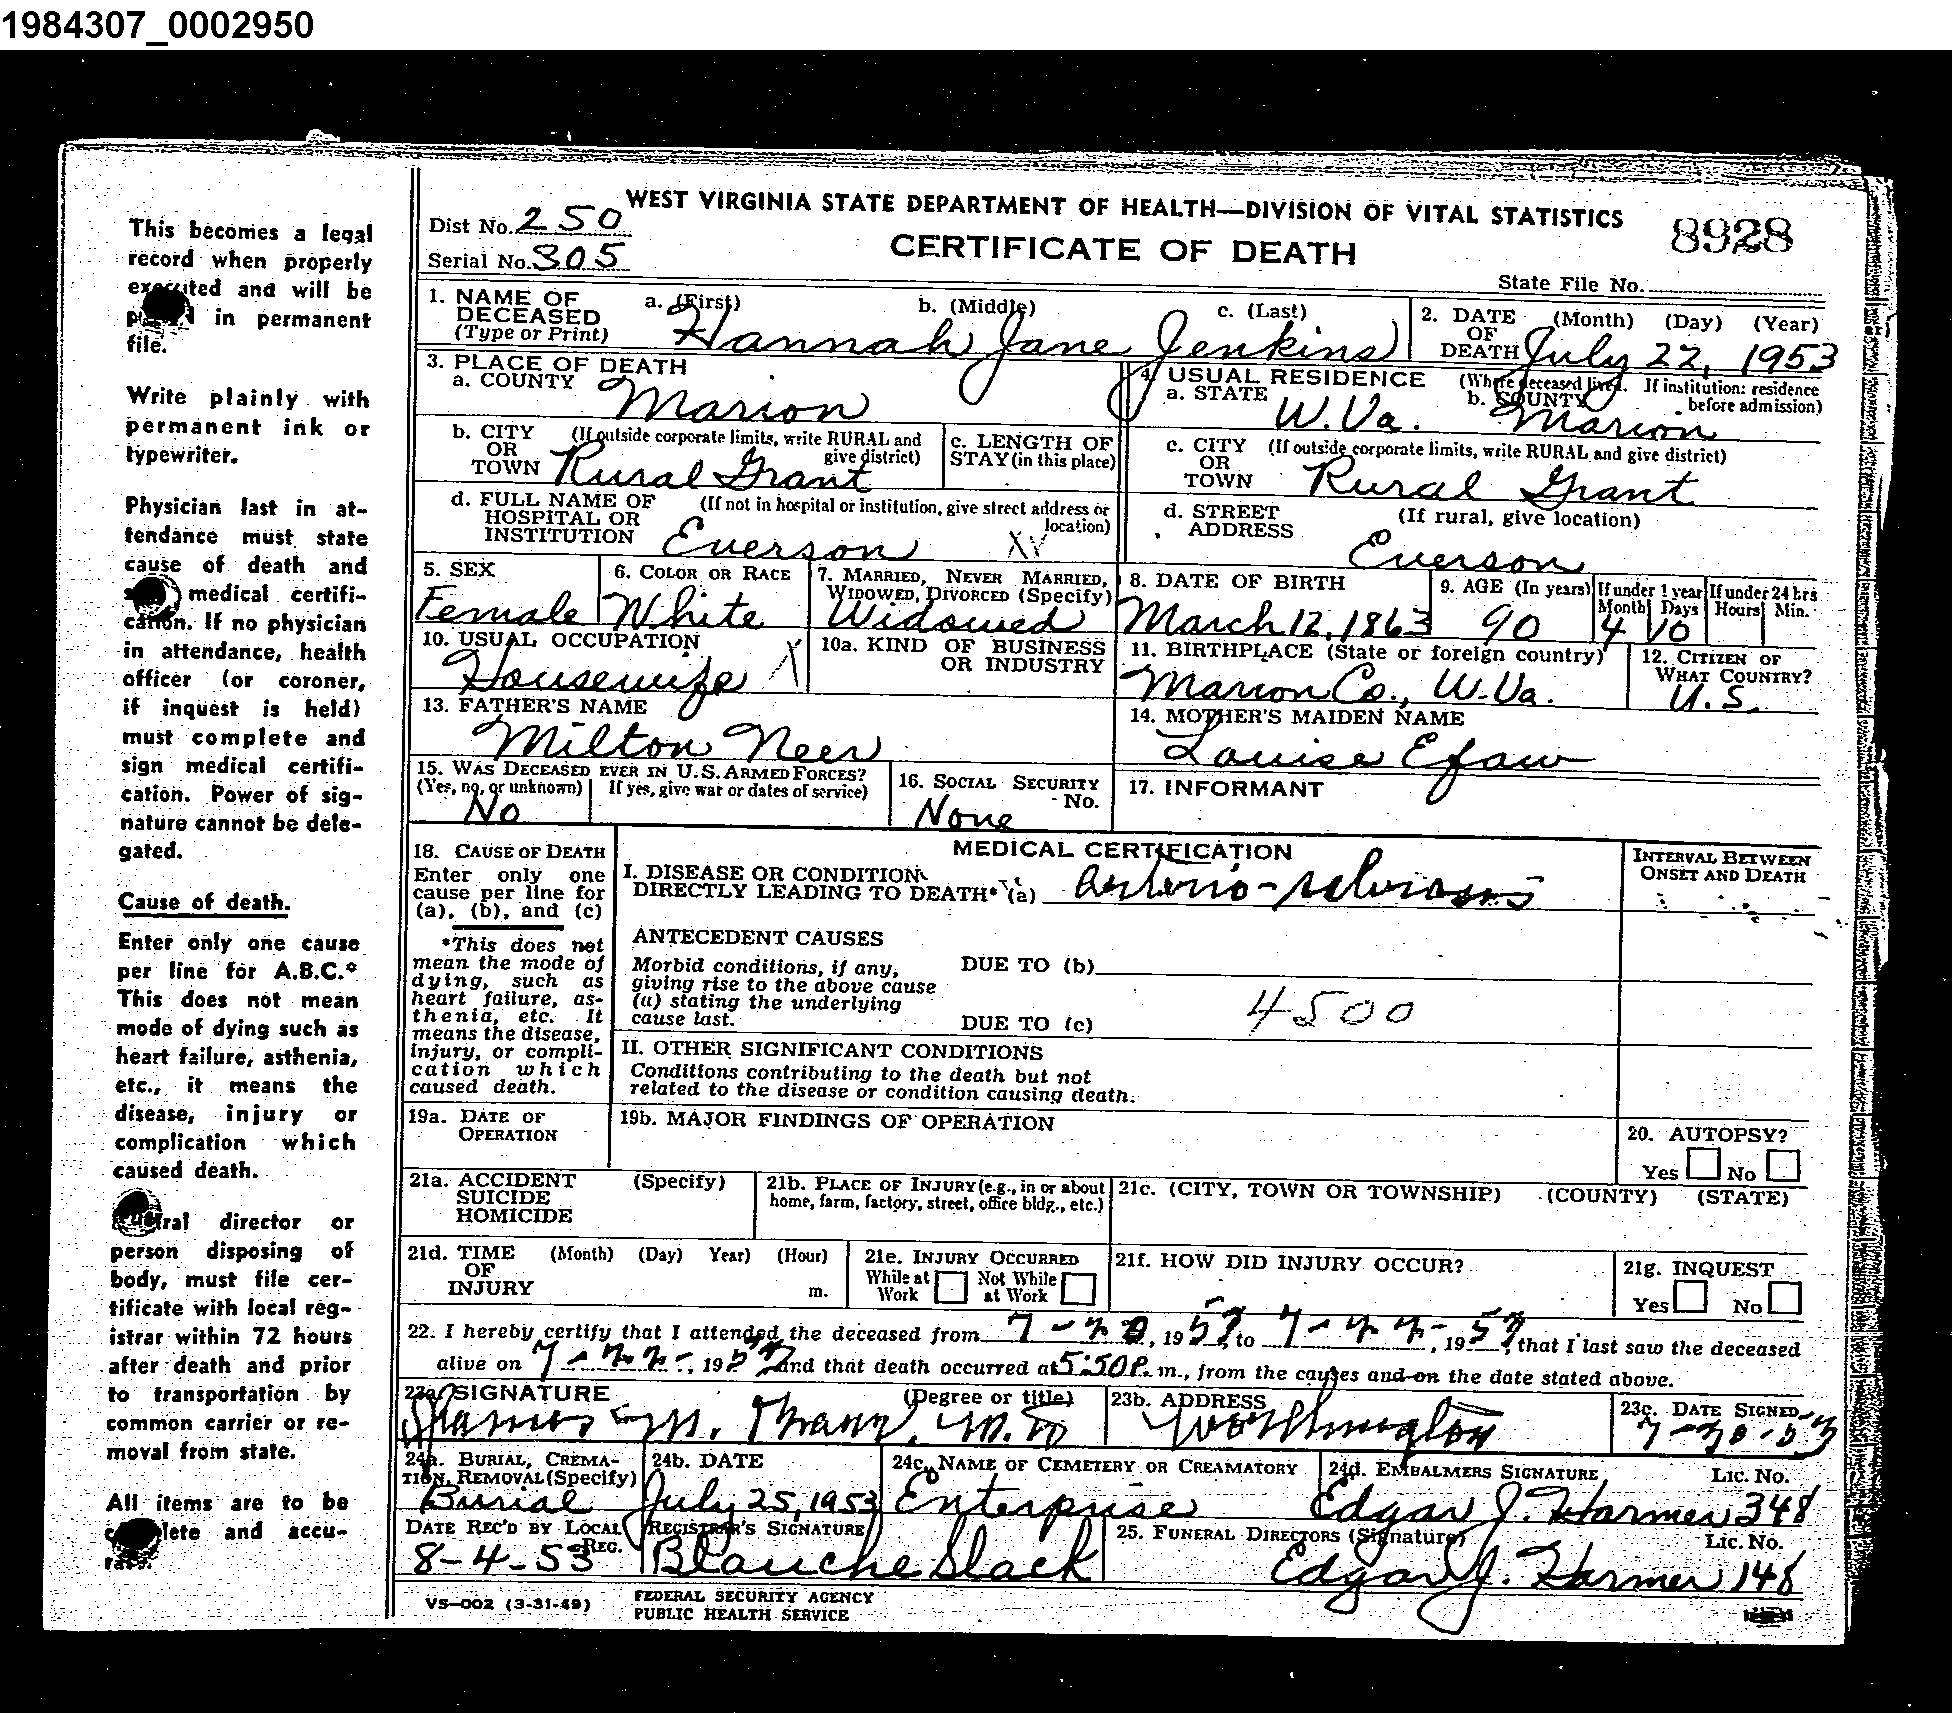 1984307_0002950
This becomes a legal
record when properly
executed and will be
in permanent
file.
Write plainly with
permanent ink or
typewriter.
Physician last in at-
tendance must state
cause of death and
medical certifi-
cation. If no physician
in attendance, health
officer (or coroner,
if inquest is held)
must complete and
sign medical certifi-
cation. Power of sig-
nature cannot be dele-
gated.
Cause of death.
Enter only one cause
per line for A.B.C.*
This does not mean
mode of dying such as
heart failure, asthenia,
etc., it means the
disease, injury or
complication which
caused death.
director or
person disposing of
body, must file cer-
tificate with local reg-
istrar within 72 hours
after death and prior
to transportation by
common carrier or re-
moval from state.
All items are to be
and accu-
WEST VIRGINIA STATE DEPARTMENT OF HEALTH—DIVISION OF VITAL STATISTICS
Dist No. 250
CERTIFICATE OF DEATH
8928
Serial No. 305
State File No.
1. NAME OF DECEASED (Type or Print) a. (First) b. (Middle) c. (Last)
Hannah Jane Jenkins
2. DATE OF DEATH (Month) (Day) (Year)
July 22, 1953
3. PLACE OF DEATH
a. COUNTY Marion
4. USUAL RESIDENCE (Where deceased lived. If institution: residence before admission)
a. STATE W. Va. b. COUNTY Marion
b. CITY OR TOWN (If outside corporate limits, write RURAL and give district)
Rural Grant
c. LENGTH OF STAY (in this place)
c. CITY OR TOWN (If outside corporate limits, write RURAL and give district)
Rural Grant
d. FULL NAME OF HOSPITAL OR INSTITUTION (If not in hospital or institution, give street address or location)
Everson
d. STREET ADDRESS (If rural, give location)
Everson
5. SEX
Female
6. COLOR OR RACE
White
7. MARRIED, NEVER MARRIED, WIDOWED, DIVORCED (Specify)
Widowed
8. DATE OF BIRTH
March 12, 1863
9. AGE (In years)
90
If under 1 year Month Days
4 10
If under 24 hrs Hours Min.
10. USUAL OCCUPATION
Housewife X
10a. KIND OF BUSINESS OR INDUSTRY
11. BIRTHPLACE (State or foreign country)
Marion Co., W. Va.
12. CITIZEN OF WHAT COUNTRY?
U.S.
13. FATHER'S NAME
Milton Neer
14. MOTHER'S MAIDEN NAME
Louise Efaw
15. WAS DECEASED EVER IN U.S. ARMED FORCES?
(Yes, no, or unknown) If yes, give war or dates of service)
No
16. SOCIAL SECURITY No.
None
17. INFORMANT
18. CAUSE OF DEATH
Enter only one cause per line for (a), (b), and (c)
*This does not mean the mode of dying, such as heart failure, asthenia, etc. It means the disease, injury, or complication which caused death.
MEDICAL CERTIFICATION
I. DISEASE OR CONDITION DIRECTLY LEADING TO DEATH* (a) arterio-sclerosis
INTERVAL BETWEEN ONSET AND DEATH
ANTECEDENT CAUSES
Morbid conditions, if any, giving rise to the above cause (a) stating the underlying cause last.
DUE TO (b)
4500
DUE TO (c)
II. OTHER SIGNIFICANT CONDITIONS
Conditions contributing to the death but not
related to the disease or condition causing death.
19a. DATE OF OPERATION
19b. MAJOR FINDINGS OF OPERATION
20. AUTOPSY?
Yes No
21a. ACCIDENT SUICIDE HOMICIDE (Specify)
21b. PLACE OF INJURY (e.g., in or about home, farm, factory, street, office bldg., etc.)
21c. (CITY, TOWN OR TOWNSHIP) (COUNTY) (STATE)
21d. TIME OF INJURY (Month) (Day) Year) (Hour) m.
21e. INJURY OCCURRED
While at Work Not While at Work
21f. HOW DID INJURY OCCUR?
21g. INQUEST
Yes No
22. I hereby certify that I attended the deceased from 7-20, 1953, to 7-22-, 1953, that I last saw the deceased
alive on 7-22-, 1953 and that death occurred at 5:50 P. m., from the causes and on the date stated above.
23a. SIGNATURE (Degree or title)
M.D.
23b. ADDRESS
Worthington
23c. DATE SIGNED
7-30-53
24a. BURIAL, CREMATION, REMOVAL (Specify)
Burial
24b. DATE
July 25, 1953
24c. NAME OF CEMETERY OR CREAMATORY
Enterprise
24d. EMBALMERS SIGNATURE Lic. No.
Edgar J. Harmer 348
DATE REC'D BY LOCAL REG.
8-4-53
REGISTRAR'S SIGNATURE
Blanche Slack
25. FUNERAL DIRECTORS (Signature) Lic. No.
Edgar J. Harmer 148
VS-002 (3-31-49)
FEDERAL SECURITY AGENCY
PUBLIC HEALTH SERVICE